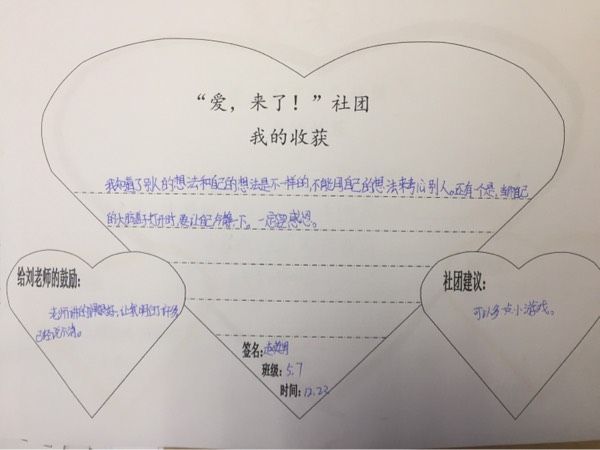 “爱，来了！”社团
我的收获
我知道了别人的想法和自己的想法是不一样的，不能用自己的想法来考虑别人。还有一个是，当自己
的大脑盖子打开时，要让自己冷静一下。一定要感恩。
给刘老师的鼓励：
老师讲的很好，让我明白了许多
社团建议：
可以多一点小游戏。
签名：
班级：5.7
时间：12.22